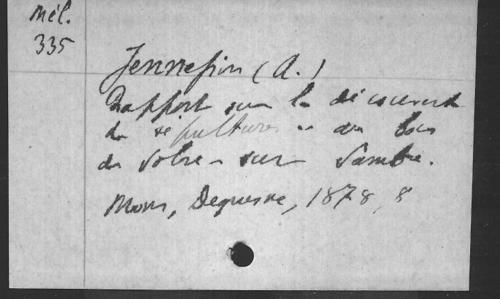 Mél.
335
Jennepin (A.)
Rapport sur la découverte
de sépultures au bois
de Solre-sur Sambre.
Mons, Dequesne, 1878, 8